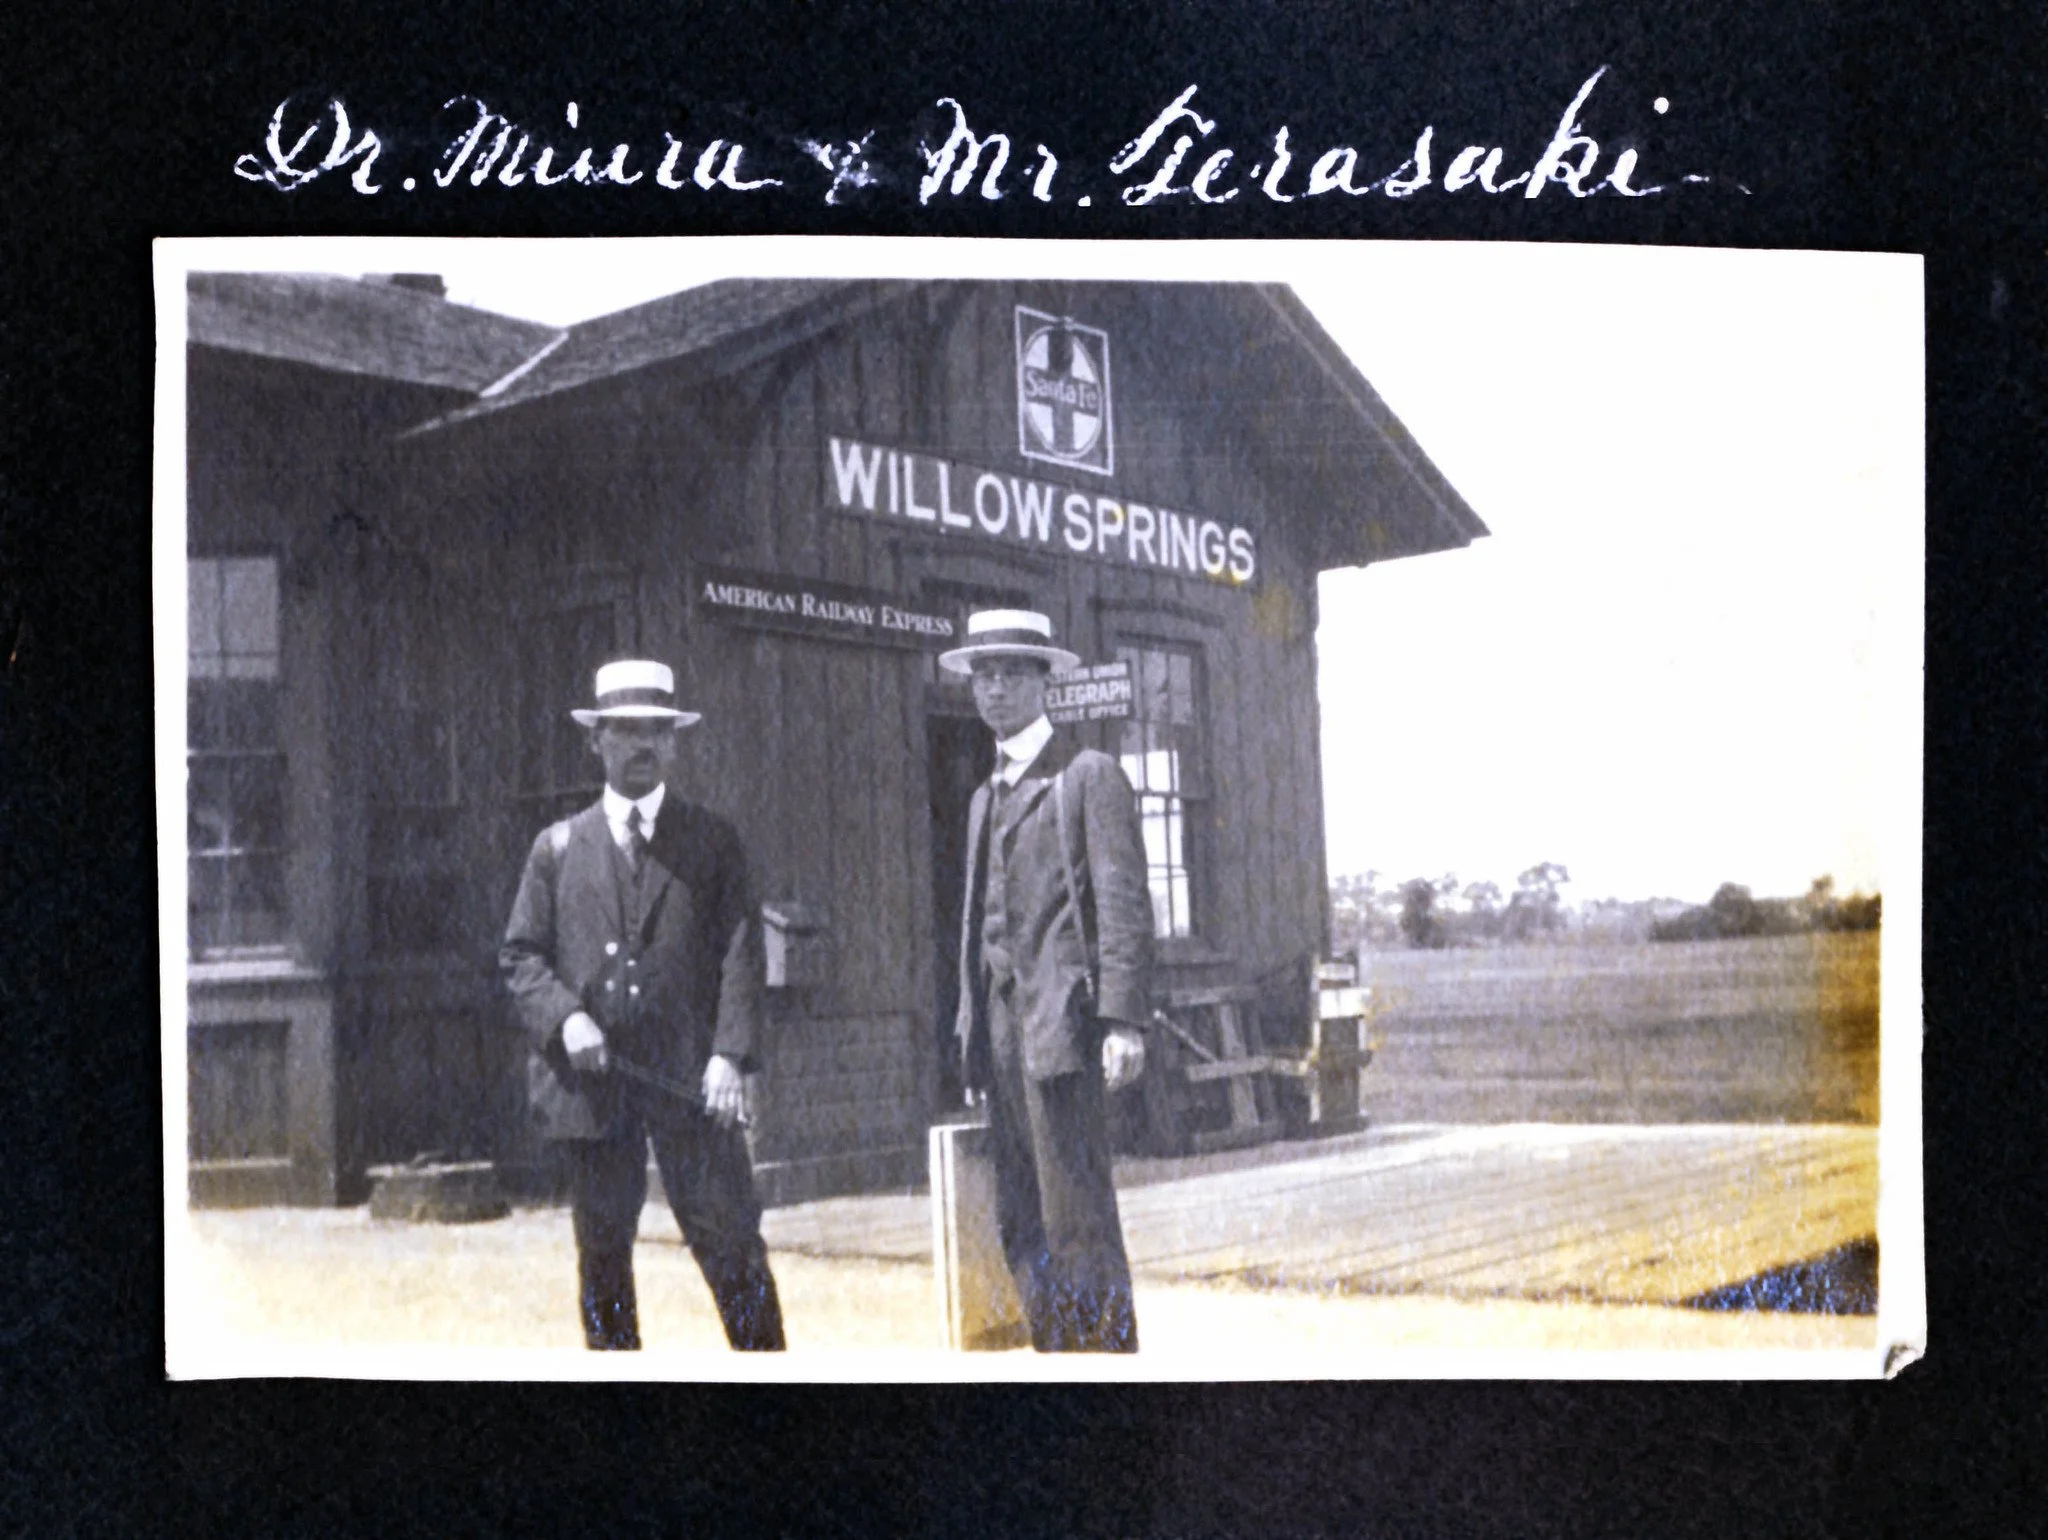 Dr. Miura & Mr. Terasaki
Santa Fe
WILLOW SPRINGS
AMERICAN RAILWAY EXPRESS
TELEGRAPH
CABLE OFFICE